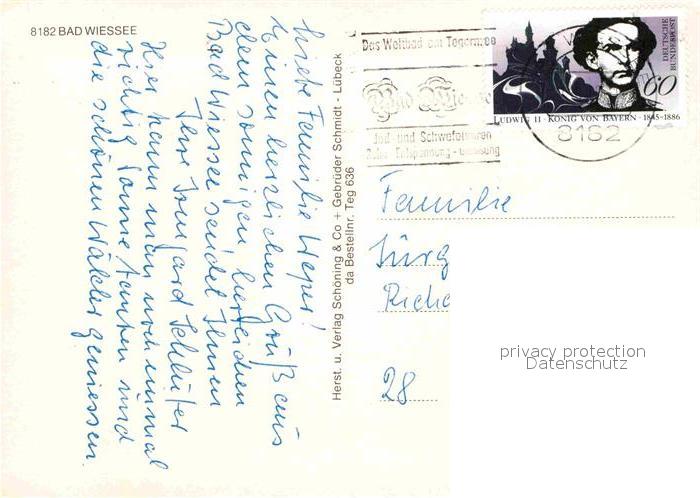 8182 BAD WIESSEE
Liebe Familie Weper!
Einen herzlichen Gruß aus
dem sonnigen herrlichen
Bad Wiessee sendet Ihnen
Ihre Irmgard Schlüter
Hier kann man noch einmal
richtig Sonne tanken und
die schönen Wälder geniessen.
Herst. u. Verlag Schöning & Co + Gebrüder Schmidt - Lübeck
da Bestellnr. Teg 636
Das Weltbad am Tegernsee
Bad Wiessee
Jod- und Schwefelquellen
8182
DEUTSCHE
BUNDESPOST
60
LUDWIG II · KÖNIG VON BAYERN · 1845-1886
Familie
Jürg
Riche
28
privacy protection
Datenschutz